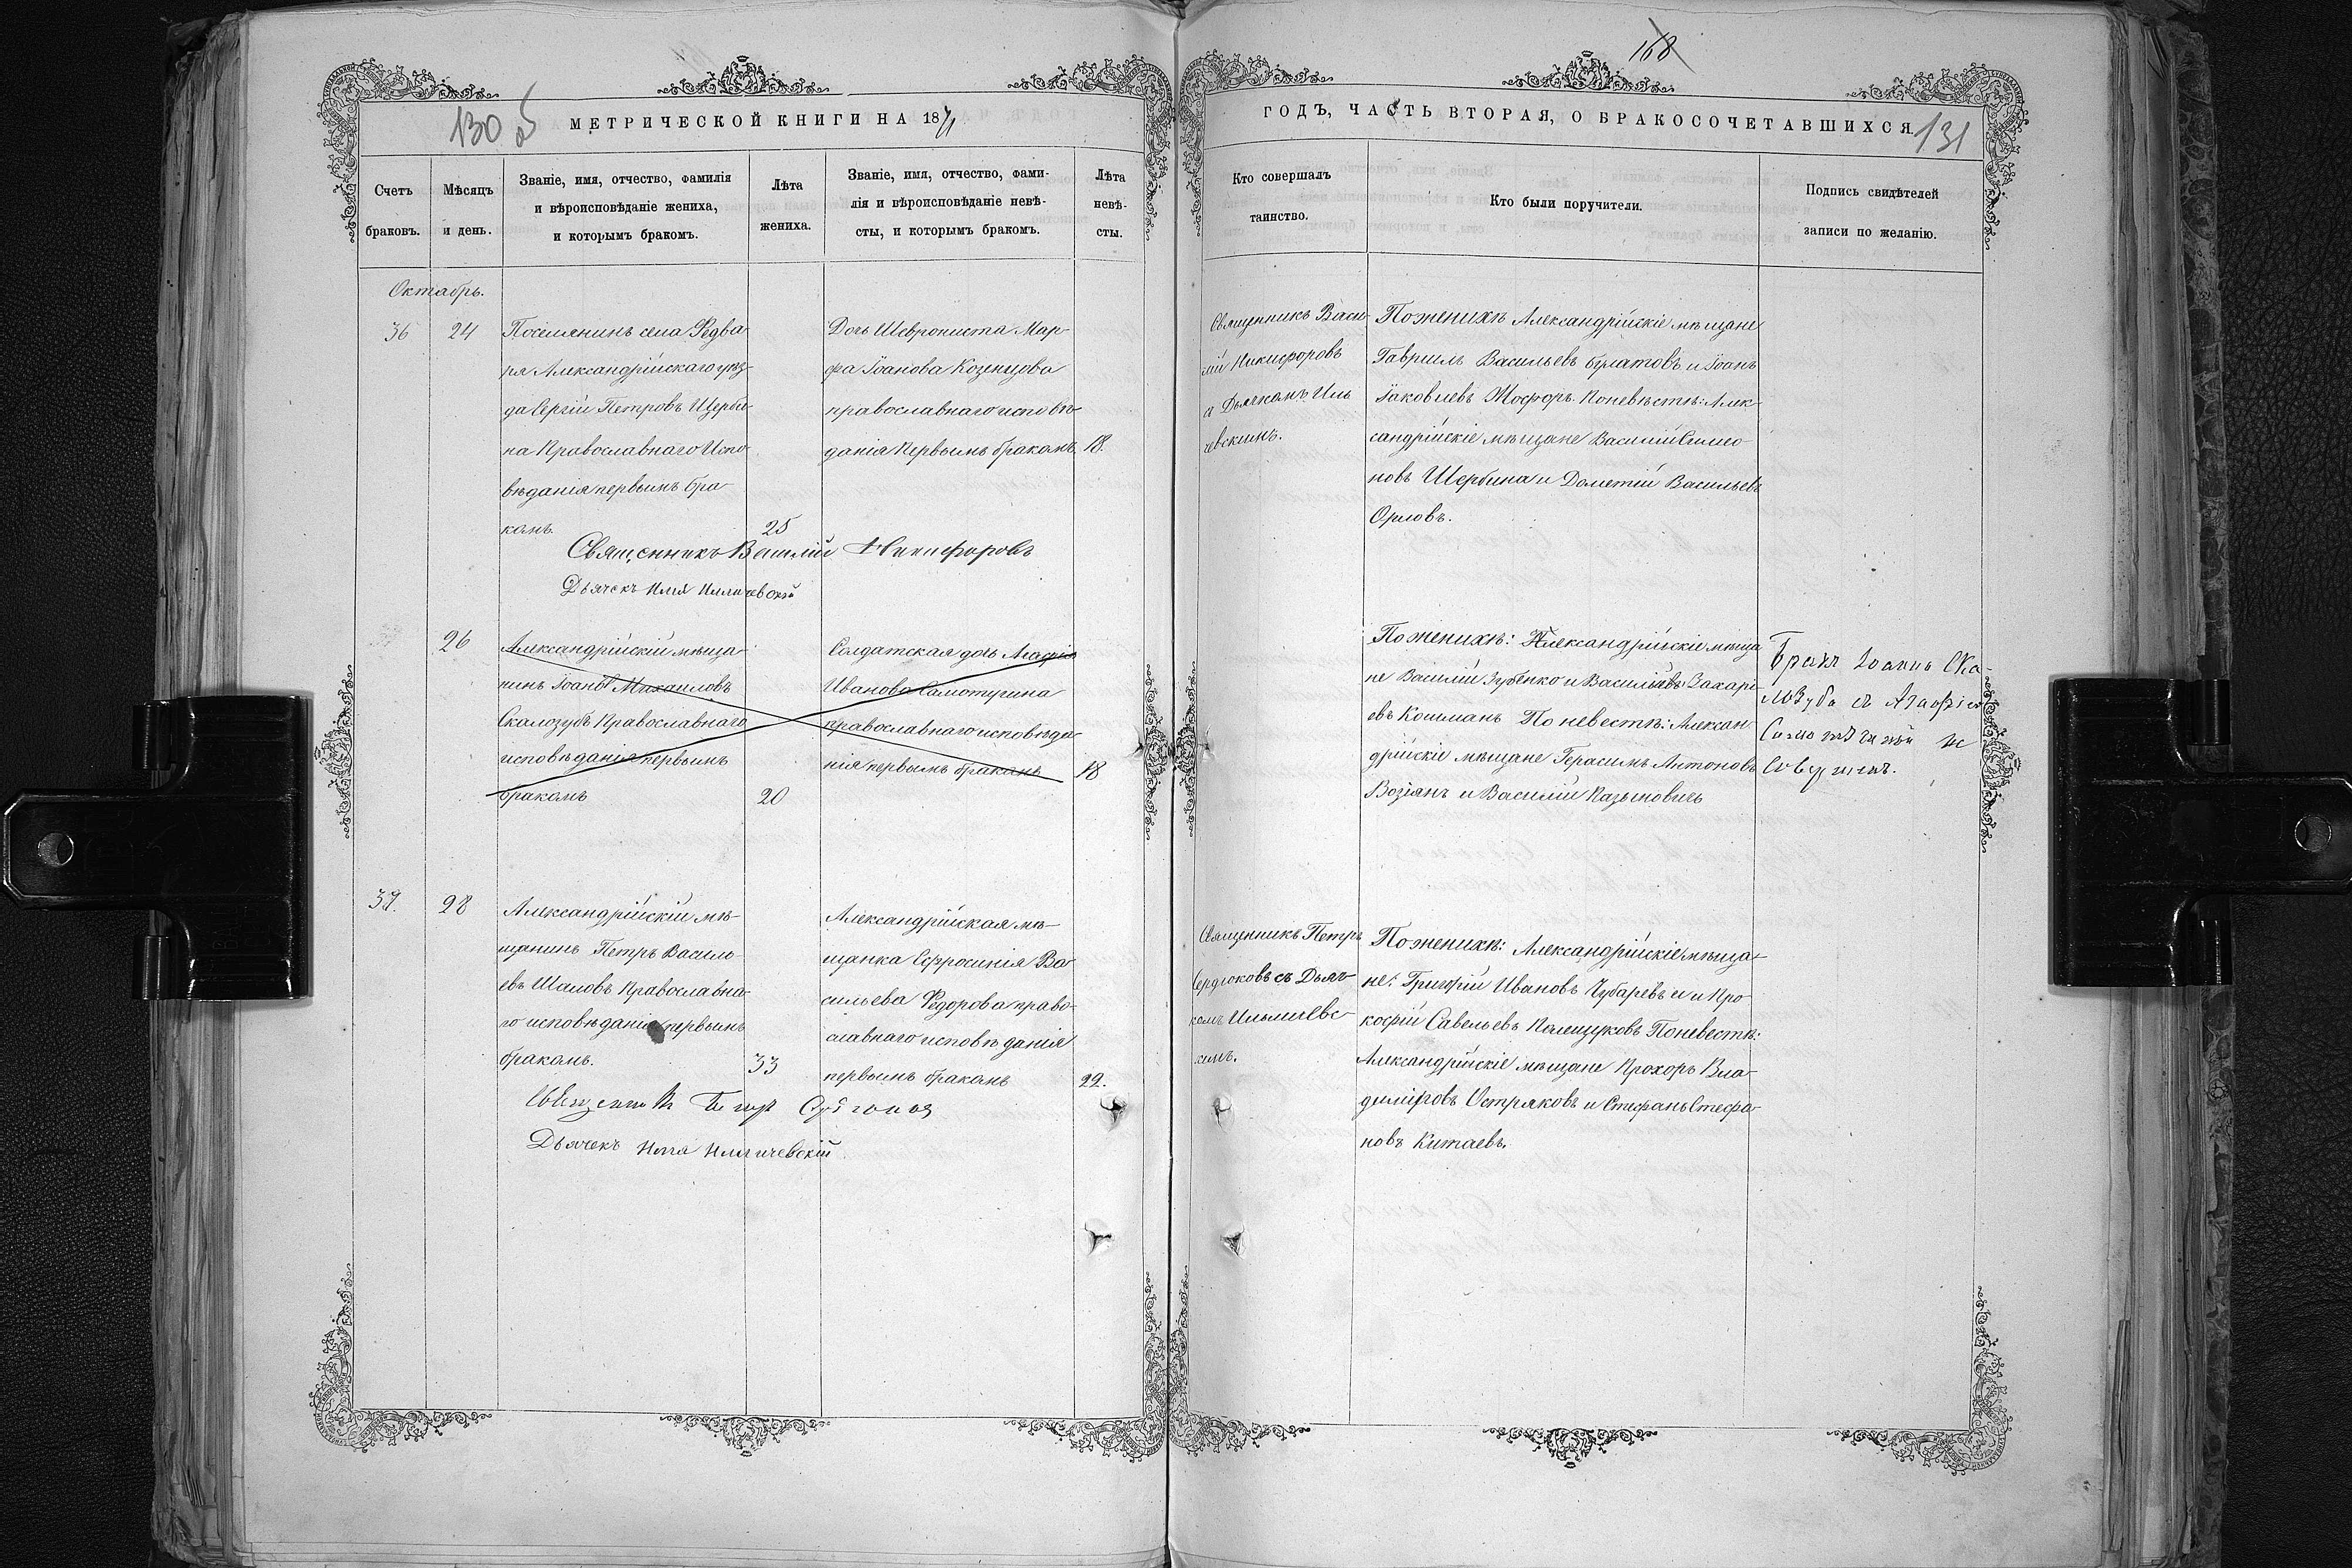 130 об
МЕТРИЧЕСКОЙ КНИГИ НА 1871
Счетъ браковъ.
Мѣсяцъ и день.
Званіе, имя, отчество, фамилія
и вѣроисповѣданіе жениха,
и которымъ бракомъ.
Лѣта
жениха.
Званіе, имя, отчество, фами-
лія и вѣроисповѣданіе невѣ-
сты, и которымъ бракомъ.
Лѣта
невѣ-
сты.
Октабрь.
36
24
Поселянинъ села Федва-
ря Александрійскаго уѣз-
да Сергій Петровъ Щерби-
на Православнаго Испо-
вѣданія первымъ бра-
комъ.
25
Дочь Шеврониста Мар-
фа Іоанова Козенцова
православнаго исповѣ-
данія первымъ бракомъ.
18.
Священникъ Василій Никифоровъ
Дьячекъ Илія Илличевскій
26
Александрійскій мѣща-
нинъ Іоанъ Михаиловъ
Скалозубъ Православнаго
исповѣданія первымъ
бракомъ
20
Солдатская дочь Агафія
Иванова Самотугина
православнаго исповѣда-
нія первымъ бракомъ
18
37.
28
Александрійскій мѣ-
щанинъ Петръ Василь-
евъ Шаловъ Православна-
го исповѣданія первымъ
бракомъ.
33
Александрійская мѣ-
щанка Єфросинія Ва-
сильева Федорова право-
славнаго исповѣданія
первымъ бракомъ
22.
Священникъ Петръ Сердюковъ
Дьячекъ Илія Илличевскій
168
ГОДЪ, ЧАСТЬ ВТОРАЯ, О БРАКОСОЧЕТАВШИХСЯ
131
Кто совершалъ
таинство.
Кто были поручители.
Подпись свидѣтелей
записи по желанію.
Священникъ Васи-
лій Никифоровъ
Дьячкомъ Или-
чевскимъ.
По женихѣ Александрійскіе мѣщане
Гавріилъ Васильевъ Булатовъ и Іоанъ
Іаковлевъ По невѣстѣ: Алек-
сандрійскіе мѣщане Василій Симео-
новъ Щербина и Дометій Васильевъ
Орловъ.
По женихѣ: Александрійскіе мѣща-
не Василій Зубенко и Василій Захарі-
евъ Кошманъ По невестѣ: Алексан-
дрійскіе мѣщане Герасимъ Антоновъ
Возіянъ и Василій Казыновичь
Бракъ Іоанна Ска-
лозуба съ Агафіею
Самотугиной не
совершенъ.
Священникъ Петръ
Сердюковъ съ Дьяч-
комъ Ильичевс-
кимъ.
По женихѣ: Александрійскіе мѣща-
не: Григорій Ивановъ Чубаревъ и Про-
кофій Савельевъ Полещуковъ По невестѣ:
Александрійскіе мѣщане Прохоръ Вла-
димировъ Остряковъ и Стефанъ Стефа-
новъ Китаевъ.